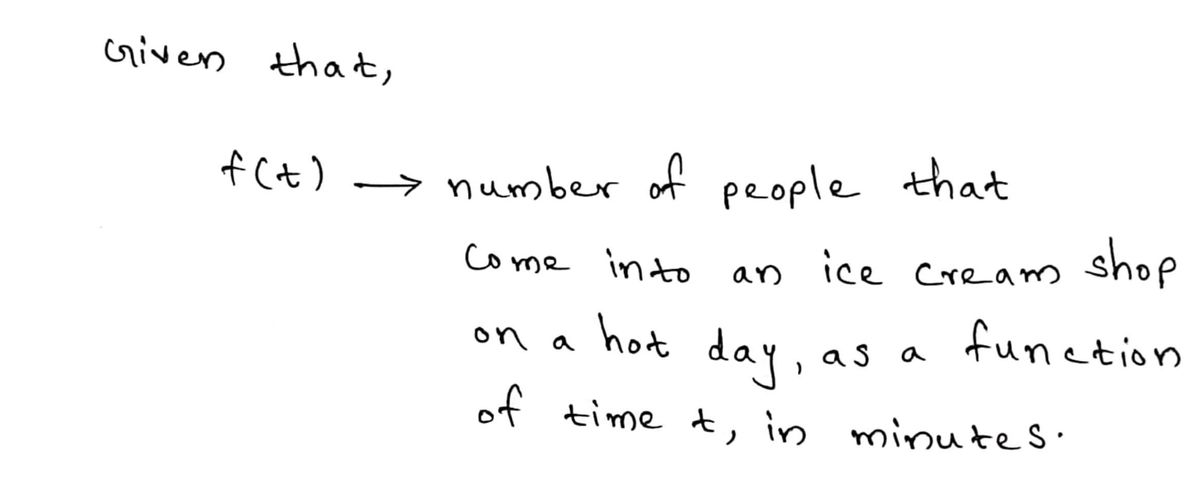 Given that,
f(t) → number of people that
come into an ice cream shop
on a hot day, as a function
of time t, in minutes.